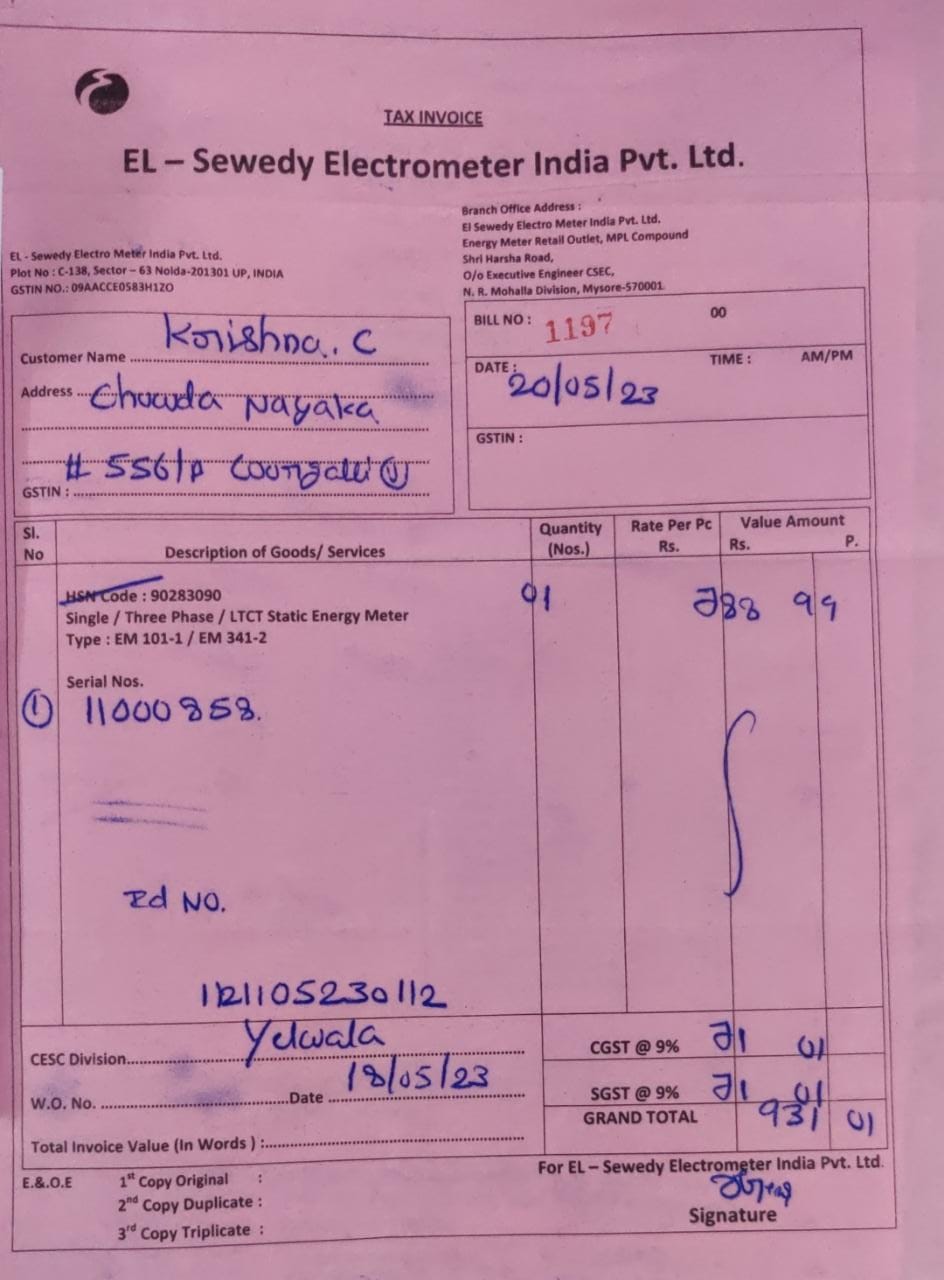 TAX INVOICE
EL – Sewedy Electrometer India Pvt. Ltd.
EL - Sewedy Electro Meter India Pvt. Ltd.
Plot No : C-138, Sector – 63 Noida-201301 UP, INDIA
GSTIN NO.: 09AACCE0583H1ZO
Branch Office Address :
El Sewedy Electro Meter India Pvt. Ltd.
Energy Meter Retail Outlet, MPL Compound
Shri Harsha Road,
O/o Executive Engineer CSEC,
N. R. Mohalla Division, Mysore-570001
Customer Name Krishna. C
Address Chowda Nayaka
# 556/P Coorgalli
GSTIN :
BILL NO : 1197 00
DATE : 20/05/23 TIME : AM/PM
GSTIN :
Sl. No Description of Goods/ Services Quantity (Nos.) Rate Per Pc Rs. Value Amount Rs. P.
HSN Code : 90283090 01 788 99
Single / Three Phase / LTCT Static Energy Meter
Type : EM 101-1 / EM 341-2
Serial Nos.
① 11000858.
Id NO.
121105230112
CESC Division Yelwala
CGST @ 9% 71 01
W.O. No. Date 18/05/23
SGST @ 9% 71 01
GRAND TOTAL 931 01
Total Invoice Value (In Words ) :
For EL – Sewedy Electrometer India Pvt. Ltd.
E.&.O.E 1st Copy Original :
2nd Copy Duplicate :
3rd Copy Triplicate :
Signature